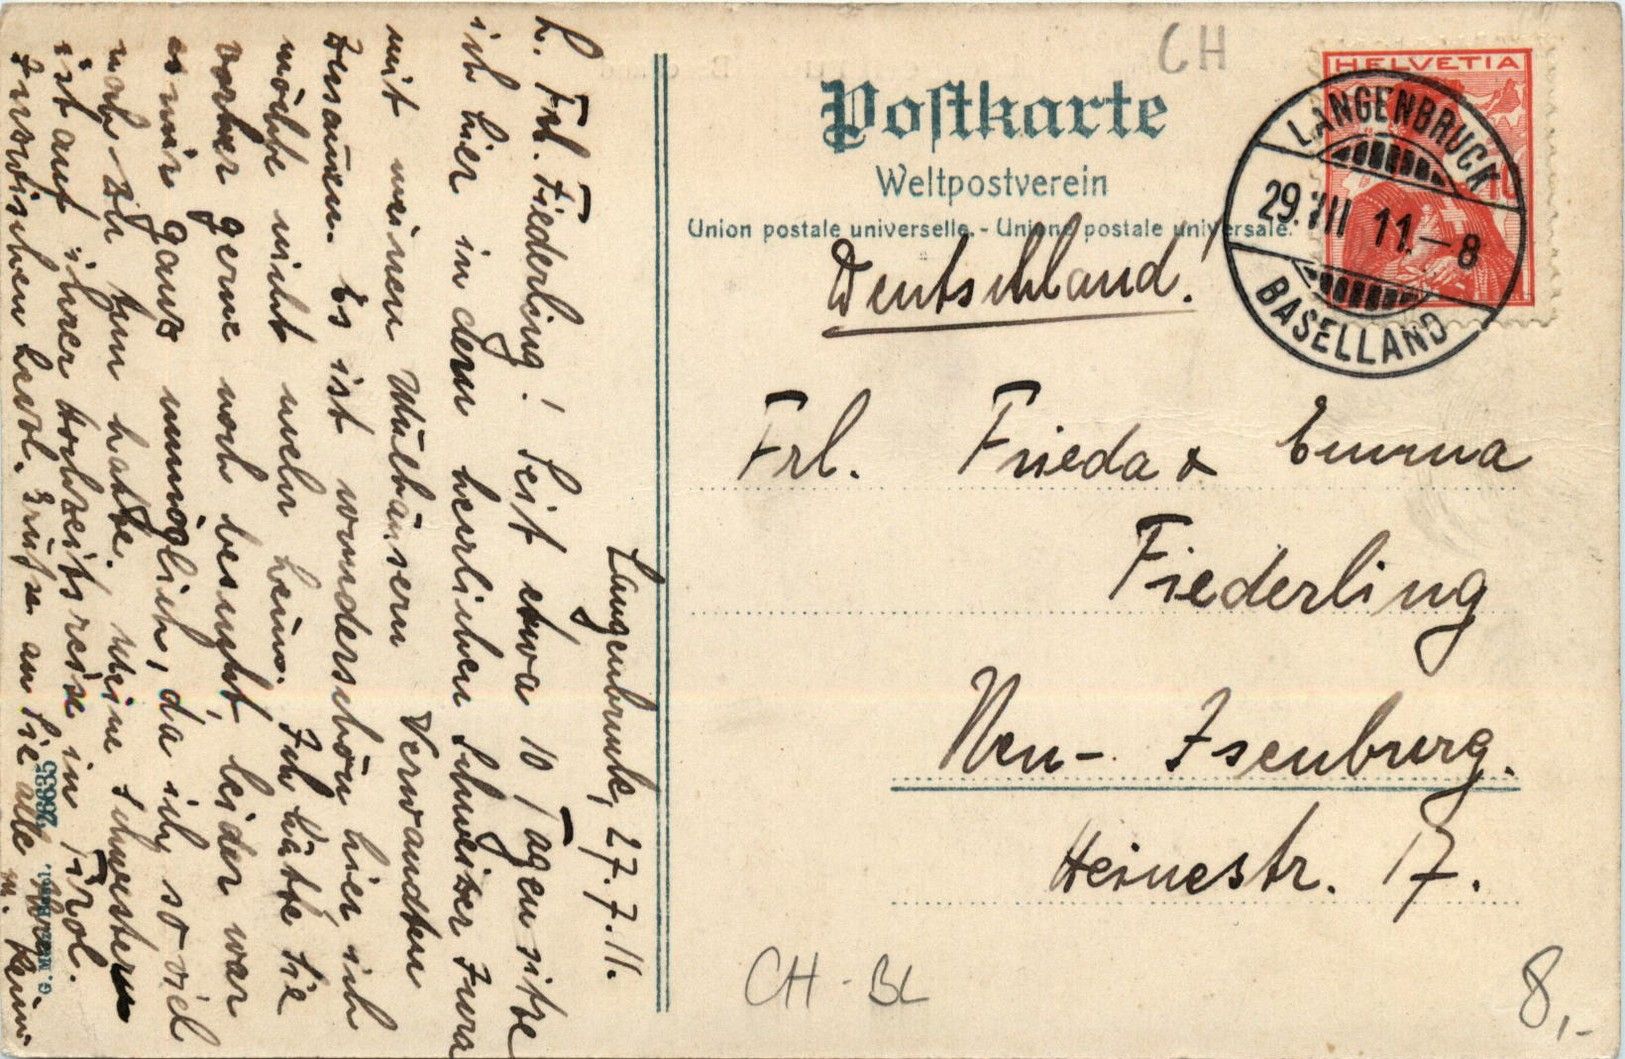 CH
Postkarte
Weltpostverein
Union postale universelle. - Unione postale universale.
HELVETIA
10
LANGENBRUCK
29. VII 11. - 8
BASELLAND
Deutschland!
Frl. Frieda & Emma
Fiederling
Neu-Isenburg.
Heinestr. 17.
CH - BL
8,-
Langenbruck, 27.7.11.
L. Frl. Fiederling! Seit etwa 10 Tagen sitze
ich hier in dem herrlichen Schweizer Jura
mit meinen Mülhausern Verwandten
zusamen. Es ist wunderschön hier ich
möchte nicht mehr heim. Ich hätte Sie
vorher gerne noch besucht, leider war
es mir ganz unmöglich, da ich so viel
noch zu tun hatte. Meine Schwestern
ist auf ihrer Hochzeitsreise in Tirol.
Inzwischen lewol. Grüsse an Sie alle